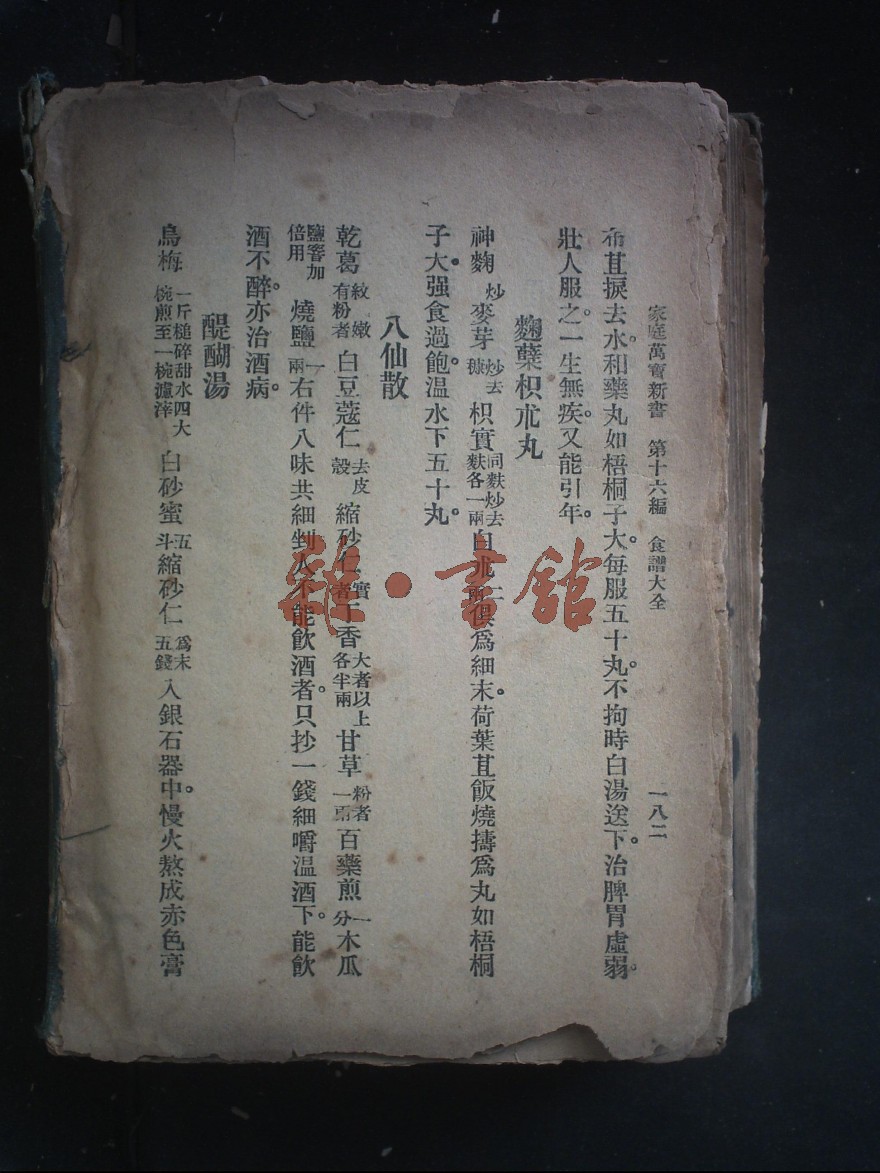 家庭萬寳新書 第十六編 食譜大全 一八二
布苴捩去水。和藥丸如梧桐子大。每服五十丸。不拘時白湯送下。治脾胃虛弱。
壯人服之。一生無疾。又能引年。
麴蘖枳朮丸
神麴 炒 麥芽 炒去穰 枳實 同麩炒去麩各一兩 白朮 二兩 俱爲細末。荷葉苴飯燒擣爲丸如梧桐
子大。强食過飽。温水下五十丸。
八仙散
乾葛 紋嫩有粉者 白豆蔻仁 去皮殼 縮砂仁 實者 丁香 大者以上各半兩 甘草 粉者一兩 百藥煎 一分 木瓜
鹽窨加倍用 燒鹽 一兩 右件八味共細剉人不能飲酒者。只抄一錢細嚼温酒下。能飲
酒不醉。亦治酒病。
醍醐湯
烏梅 一斤槌碎甜水四大椀煎至一椀濾滓 白砂蜜 五斗 縮砂仁 爲末五錢 入銀石器中。慢火熬成赤色膏
雜·書館